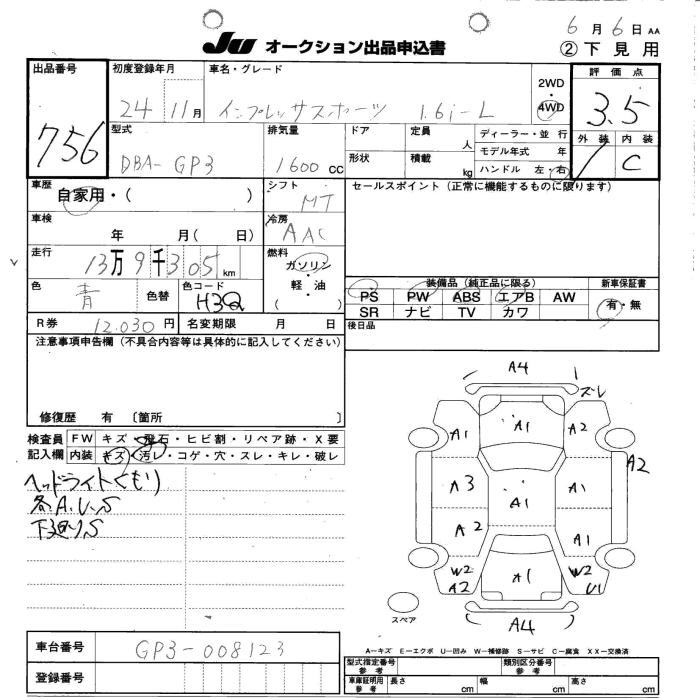 6月6日 AA
JU オークション出品申込書
②下見用
出品番号
756
初度登録年月
24 11月
車名・グレード
インプレッサスポーツ 1.6i-L
2WD
・
4WD
評価点
3.5
外装 内装
C
型式
DBA-GP3
排気量
1600 CC
ドア
定員
人
形状
積載
kg
ディーラー・並行
モデル年式 年
ハンドル 左・右
車歴
自家用・( )
シフト
MT
セールスポイント(正常に機能するものに限ります)
車検
年 月( 日)
冷房
AAC
走行
13万9千305 km
燃料
ガソリン
・
軽・油
( )
色
青
色替
色コード
H3Q
装備品(純正品に限る)
新車保証書
PS PW ABS エアB AW
有・無
SR ナビ TV カワ
R券 12,030円
名変期限 月 日
後日品
注意事項申告欄(不具合内容等は具体的に記入してください)
修復歴 有 〔箇所 〕
検査員
記入欄
FW キズ・飛石・ヒビ割・リペア跡・X要
内装 キズ・汚レ・コゲ・穴・スレ・キレ・破レ
ヘッドライトくもり
各A.U.S
下廻りS
A4
ズレ
A1
A1
A2
A2
A3
A1
A1
A2
A1
W2
A2
A1
W2
U1
(A4)
スペア
A-キズ E-エクボ U-凹み W-補修跡 S-サビ C-腐食 XX-交換済
車台番号
GP3-008123
登録番号
型式指定番号
参考
類別区分番号
参考
車庫証明用
参考
長さ cm
幅 cm
高さ cm